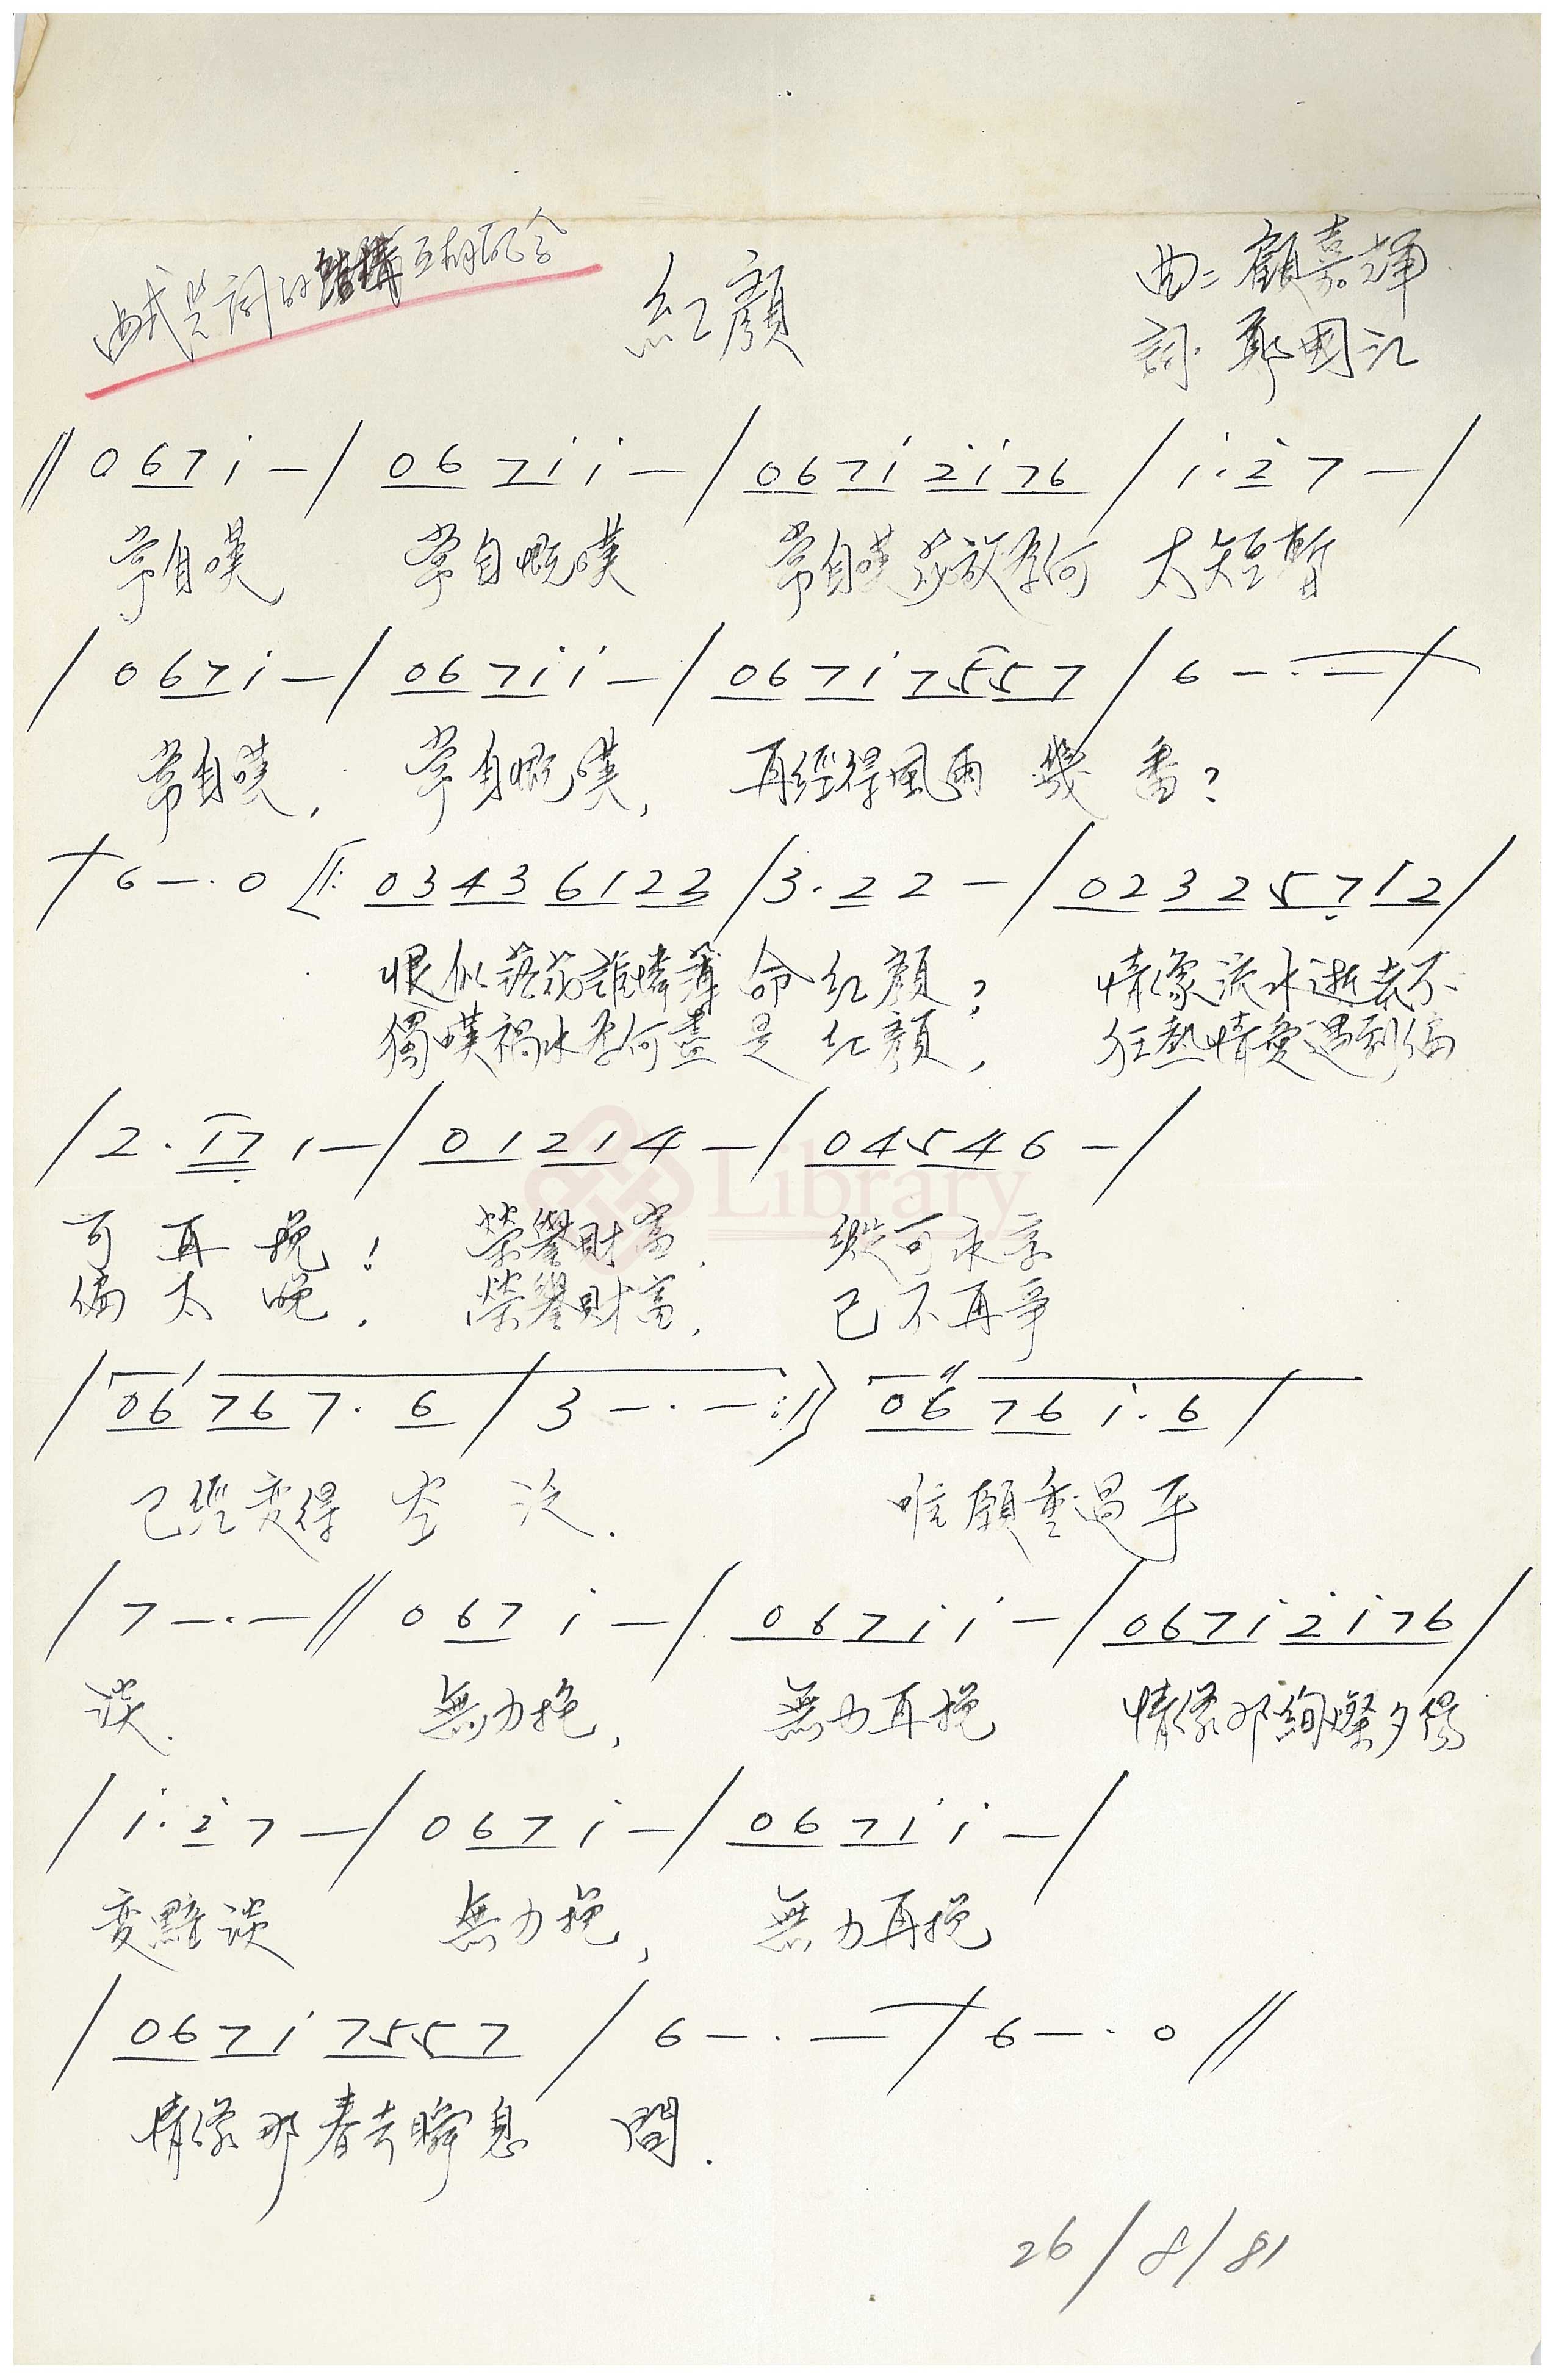 曲式與詞的結構互相配合
紅顏
曲: 顧嘉煇
詞. 鄭國江
// 0 6 7 i — / 0 6 7 i i — / 0 6 7 i 2̇ i 7 6 / i . 2̇ 7 — /
常自嘆 常自慨嘆 常自嘆芬芳為何 太短暫
/ 0 6 7 i — / 0 6 7 i i — / 0 6 7 i 7 5 5 7 / 6 — . — /
常自嘆, 常自慨嘆, 再經得風雨 幾 番?
/ 6 — . 0 //: 0 3 4 3 6 1 2 2 / 3 . 2 2 — / 0 2 3 2 5 7̣ 1 2 /
恨似落花誰憐薄 命 紅 顏? 情像流水逝去不
獨嘆禍水為何盡 是 紅 顏, 狂熱情愛遇到偏
/ 2 . 1 7̣ 1 — / 0 1 2 1 4 — / 0 4 5 4 6 — /
Library
可 再 挽! 榮譽財富, 縱可永享
偏 太 晚. 榮譽財富, 已不再爭
/ 0 6 7 6 7 . 6 / 3 — . — :// 0 6 7 6 i . 6 /
已經變得 空 泛. 唯願重過平
/ 7 — . — // 0 6 7 i — / 0 6 7 i i — / 0 6 7 i 2̇ i 7 6 /
淡. 無力挽, 無力再挽 情像那絢燦夕陽
/ i . 2̇ 7 — / 0 6 7 i — / 0 6 7 i i — /
變黯淡 無力挽, 無力再挽
/ 0 6 7 i 7 5 5 7 / 6 — . — / 6 — . 0 //
情像那春去瞬息 間.
26/8/81